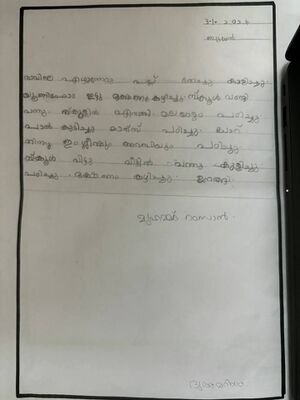 3-10-2024
ബുധൻ
രാവിലെ എഴുന്നേറ്റു പല്ല് തേച്ചു കുളിച്ചു
യൂണിഫോം ഇട്ടു ഭക്ഷണം കഴിച്ചു സ്കൂൾ വണ്ടി
വന്നു സ്കൂളിൽ എത്തി മലയാളം പഠിച്ചു
പാൽ കുടിച്ചു മാത്സ് പഠിച്ചു ചോറ്
തിന്നു ഇംഗ്ലീഷും അറബിയും പഠിച്ചു
സ്കൂൾ വിട്ടു വീട്ടിൽ വന്നു കുളിച്ചു
പഠിച്ചു ഭക്ഷണം കഴിച്ചു ഉറങ്ങി
മുഹമ്മദ് റസാൻ